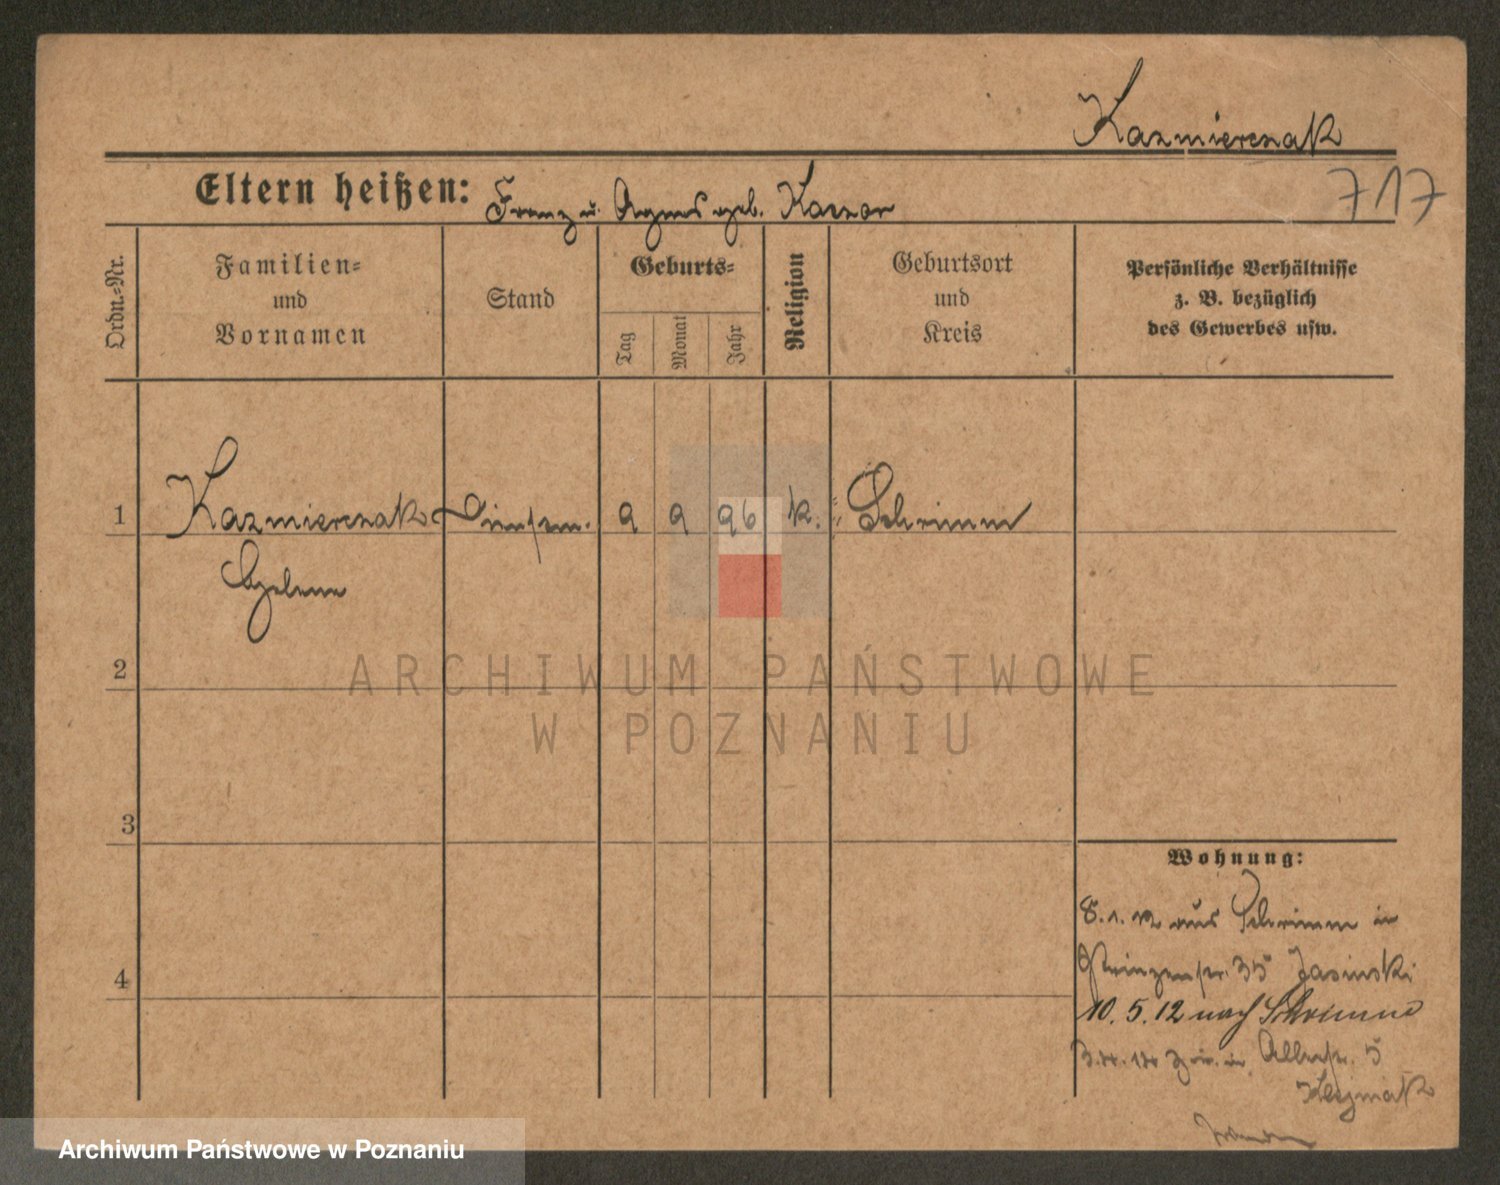 Kazmierczak
717
Eltern heißen: Franz u. Agnes geb. Kaczor
Ordn.-Nr.
Familien-
und
Vornamen
Stand
Geburts-
Tag
Monat
Jahr
Religion
Geburtsort
und
Kreis
Persönliche Verhältnisse
z. B. bezüglich
des Gewerbes usw.
1 Kazmierczak 9 9 96 k. Schrimm
2
3
4
Wohnung:
8.1.12 aus Schrimm in
Prinzenstr. 35 Jasinski
10.5.12 nach Schrimm
in 5
ARCHIWUM PAŃSTWOWE
W POZNANIU
Archiwum Państwowe w Poznaniu